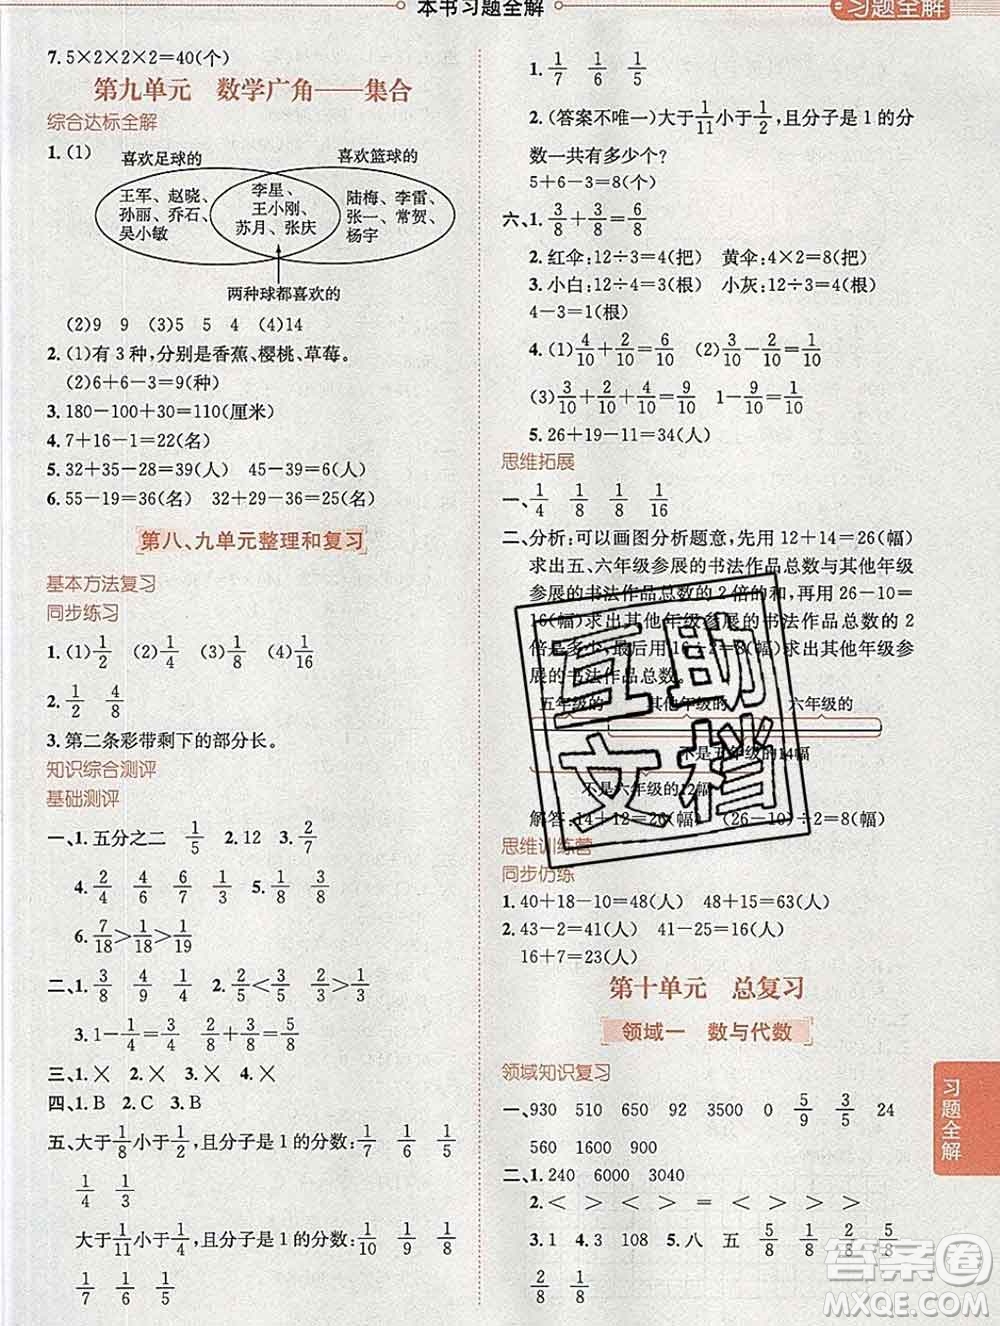 本书习题全解
习题全解
7. 5×2×2×2=40(个)
第九单元 数学广角——集合
综合达标全解
1. (1) 喜欢足球的 喜欢篮球的
王军、赵晓、
孙丽、乔石、
吴小敏
李星、
王小刚、
苏月、张庆
陆梅、李雷、
张一、常贺、
杨宇
两种球都喜欢的
(2)9 9 (3)5 5 4 (4)14
2. (1)有 3 种,分别是香蕉、樱桃、草莓。
(2)6+6-3=9(种)
3. 180-100+30=110(厘米)
4. 7+16-1=22(名)
5. 32+35-28=39(人) 45-9=36(人)
6. 55-19=36(名) 32+29-36=25(名)
第八、九单元整理和复习
基本方法复习
同步练习
1. (1)1/2 (2)1/4 (3)1/8 (4)1/16
2. 1/2 4/8
3. 第二条彩带剩下的部分长。
知识综合测评
基础测评
一、1. 五分之二 1/5 2. 12 3. 2/7
4. 2/4 4/6 6/7 1/3 5. 1/8 3/8
6. 7/18>1/18>1/19
二、1. 3/8 3/8 4/9 5/9 2. 2/5<3/5 1/5<1/2
3. 1-1/4=3/4 4/4-1/4=3/4
三、1. × 2. × 3. × 4. ×
四、1. B 2. C 3. B
五、大于1/8小于1/2,且分子是 1 的分数:1/7 1/6 1/5
1/4 1/3
大于1/11小于1/2,且分子是 1 的分数:1/10 1/9 1/8
1/7 1/6 1/5 1/4 1/3
1. 1/7 1/6 1/5
2. (答案不唯一)大于1/11小于1/2,且分子是 1 的分
数一共有多少个?
5+6-3=8(个)
六、1. 3/8+3/8=6/8
2. 红伞:12÷3=4(把) 黄伞:4×2=8(把)
3. 小白:12÷3=4(根) 小灰:12÷4=3(根)
4-3=1(根)
4. (1)4/10+2/10=6/10 (2)3/10-2/10=1/10
(3)3/10+2/10+4/10=9/10 1-9/10=1/10
5. 26+19-11=34(人)
思维拓展
一、1/4 1/8 1/8 1/16
二、分析:可以画图分析题意,先用 12+14=26(幅)
求出五、六年级参展的书法作品总数与其他年级
参展的书法作品总数的 2 倍的和,再用 26-10=
16(幅)求出其他年级参展的书法作品总数的 2
倍是多少,最后用 16÷2=8(幅)求出其他年级参
展的书法作品总数。
五年级的 其他年级的 六年级的
不是五年级的14幅
不是六年级的12幅
解答:14+12=26(幅) (26-10)÷2=8(幅)
思维训练营
同步仿练
1. 40+18-10=48(人) 48+15=63(人)
2. 43-2=41(人) 41-25=16(人)
16+7=23(人)
第十单元 总复习
领域一 数与代数
领域知识复习
一、930 510 650 92 3500 0 5/9 3/5 24
560 1600 800
二、1. 240 6000 3040
2. < < > > = < > > >
3. 1 4. 3 108 5. 八 五 5/8 1/8 2/8 5/8
2/8 1/8
习题全解
互助
文档
答案圈
MXQE.COM